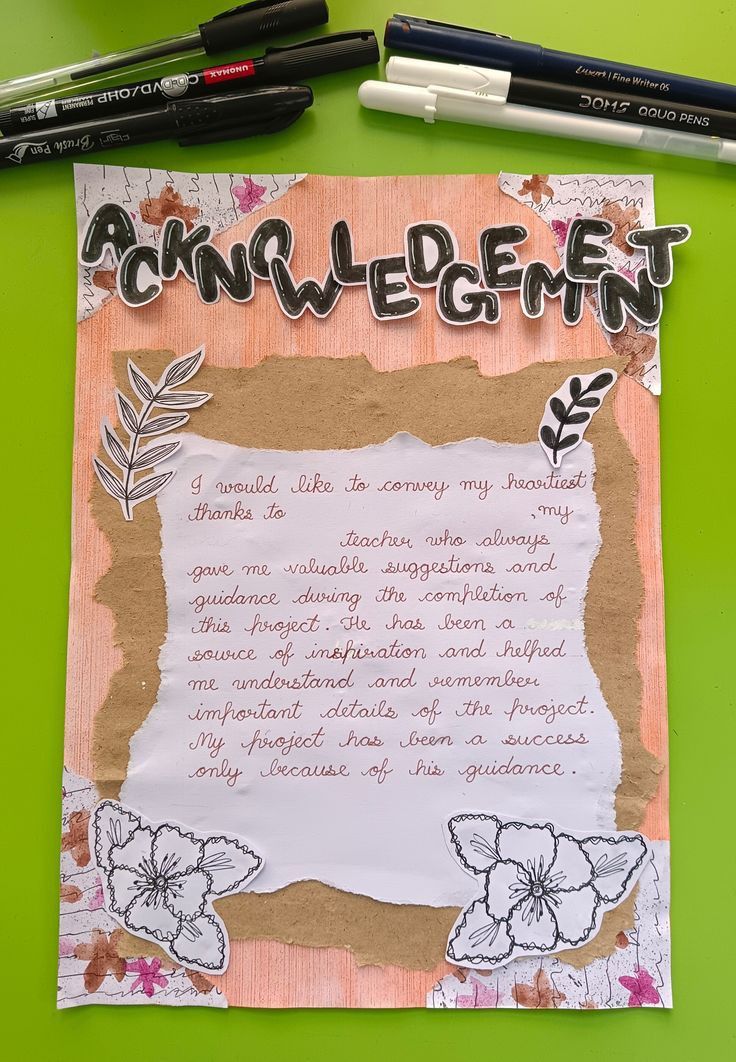 UNOMAX
CD-DVD/OHP
PERMANENT
MARKER
SUPER
Flair Brush Pen
Luxor | Fine Writer 05
DOMS AQUA PENS
ACKNOWLEDGEMENT
I would like to convey my heartiest
thanks to , my
teacher who always
gave me valuable suggestions and
guidance during the completion of
this project. He has been a
source of inspiration and helped
me understand and remember
important details of the project.
My project has been a success
only because of his guidance.